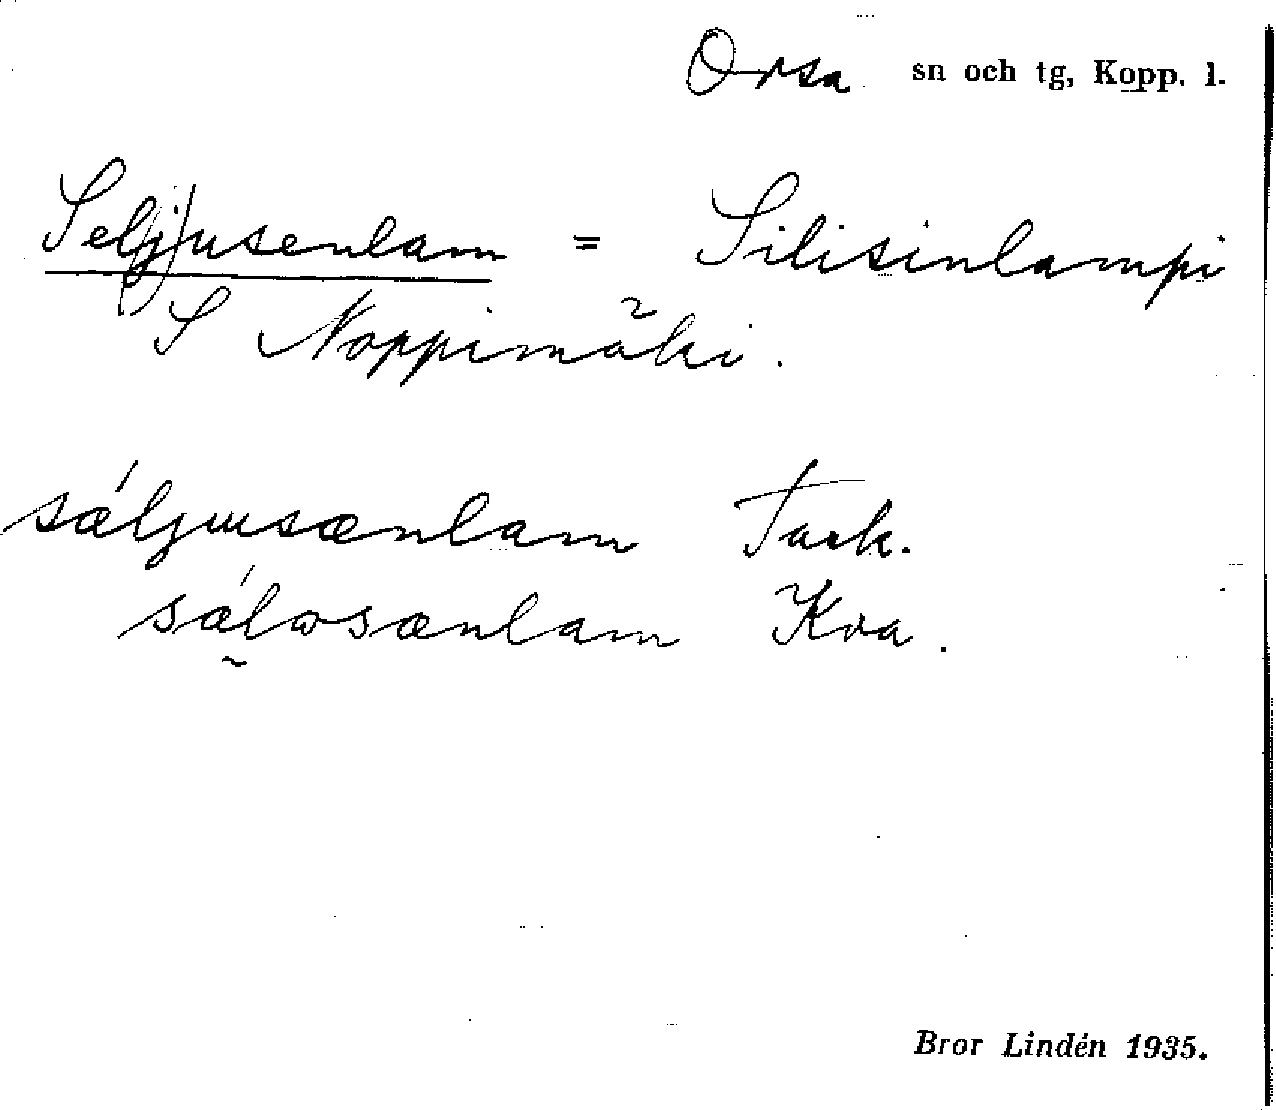 Orsa sn och tg, Kopp. l.
Sel(j)usenlam = Silisinlampi
S Noppimäki.
sǽljusænlam Task.
sǽlωsænlam Kva.
Bror Lindén 1935.